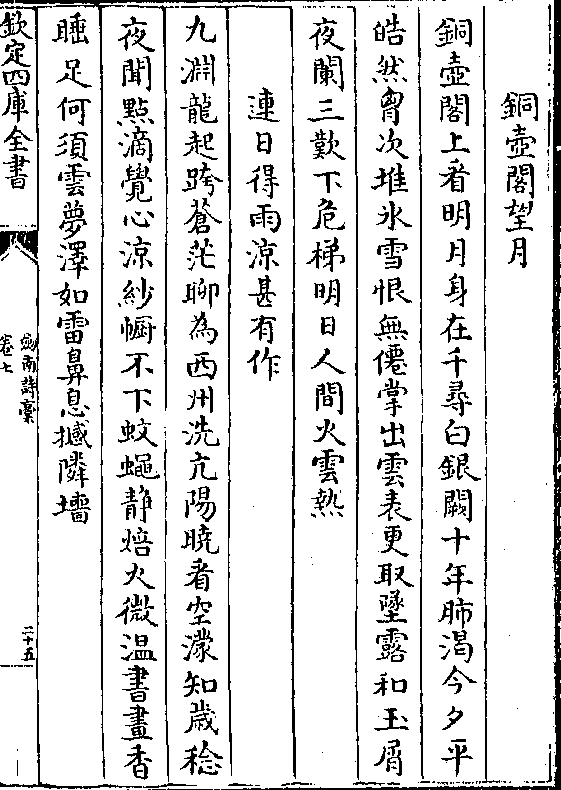 銅壺閣望月
銅壺閣上看明月身在千尋白銀闕十年肺渴今夕平
皓然胷次堆氷雪恨無僊掌出雲表更取墜露和玉屑
夜闌三歎下危梯明日人間火雲熱
連日得雨涼甚有作
九淵龍起跨蒼茫聊為西州洗亢陽曉看空濛知歲稔
夜聞點滴覺心涼紗幮不下蚊蠅静焙火微温書畫香
睡足何須雲夢澤如雷鼻息撼隣墻
欽定四庫全書
劍南詩稾
卷七
二十五